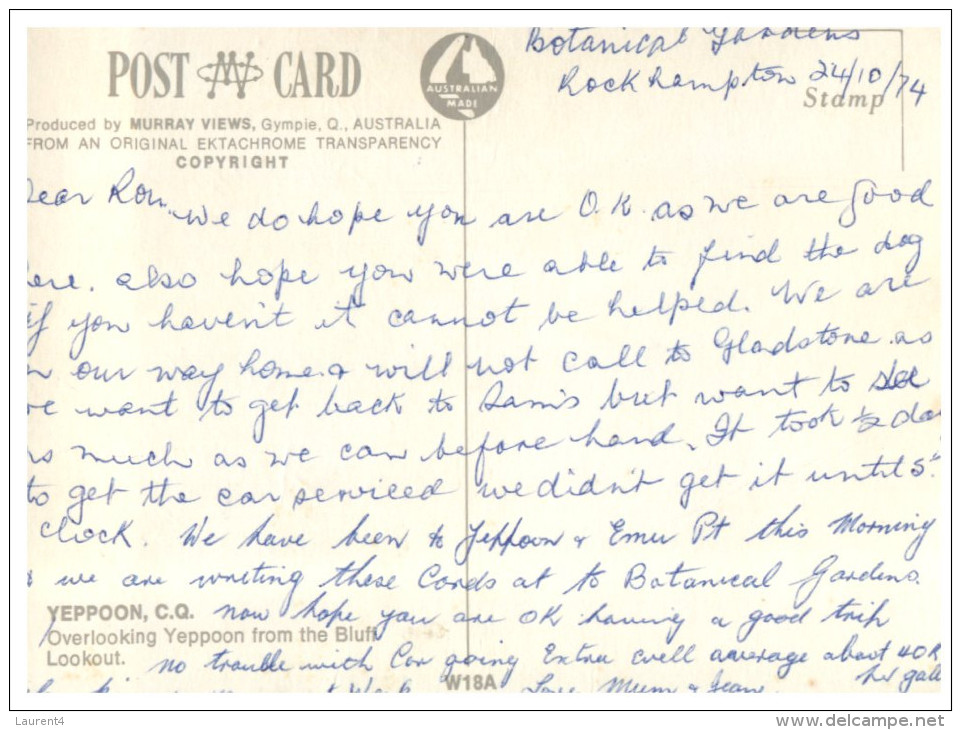 Botanical Gardens
Rockhampton 24/10/74
POST CARD
AUSTRALIAN
MADE
Stamp
Produced by MURRAY VIEWS, Gympie, Q., AUSTRALIA
FROM AN ORIGINAL EKTACHROME TRANSPARENCY
COPYRIGHT
Dear Ron, We do hope you are O.K. as we are good
here. also hope you were able to find the dog
if you haven't it cannot be helped. We are
on our way home & will not call to Gladstone as
we want to get back to Sam's but want to see
as much as we can before hand. It took ½ day
to get the car serviced we didn't get it until 5
clock. We have been to Yeppoon & Emu Pt this Morning
& we are writing these Cards at to Botanical Gardens.
now hope you are OK having a good trip
YEPPOON, C.Q.
Overlooking Yeppoon from the Bluff
Lookout.
no trouble with Car going Extra well average about 40
per gall
W18A
Love Mum & Jean
Laurent4
www.delcampe.net